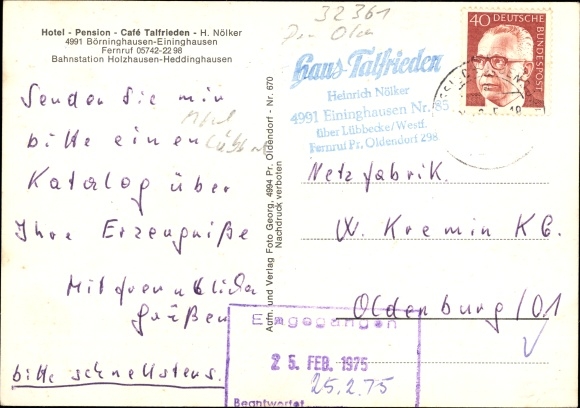 Hotel - Pension - Café Talfrieden - H. Nölker
4991 Börninghausen-Eininghausen
Fernruf 05742-2298
Bahnstation Holzhausen-Heddinghausen
Senden Sie mir
bitte einen
Katalog über
Ihre Erzeugniße
Mit freundlichen
Grüßen
bitte schnellstens.
Aufn. und Verlag Foto Georg, 4994 Pr. Oldendorf - Nr. 670
Nachdruck verboten
32361
Pr. Olden
Haus Talfrieden
Heinrich Nölker
4991 Eininghausen Nr. 85
über Lübbecke/Westf.
Fernruf Pr. Oldendorf 298
40 DEUTSCHE
BUNDESPOST
Netzfabrik
W. Kremin KG.
Oldenburg/O1
Eingegangen
25. FEB. 1975
25.2.75
Beantwortet